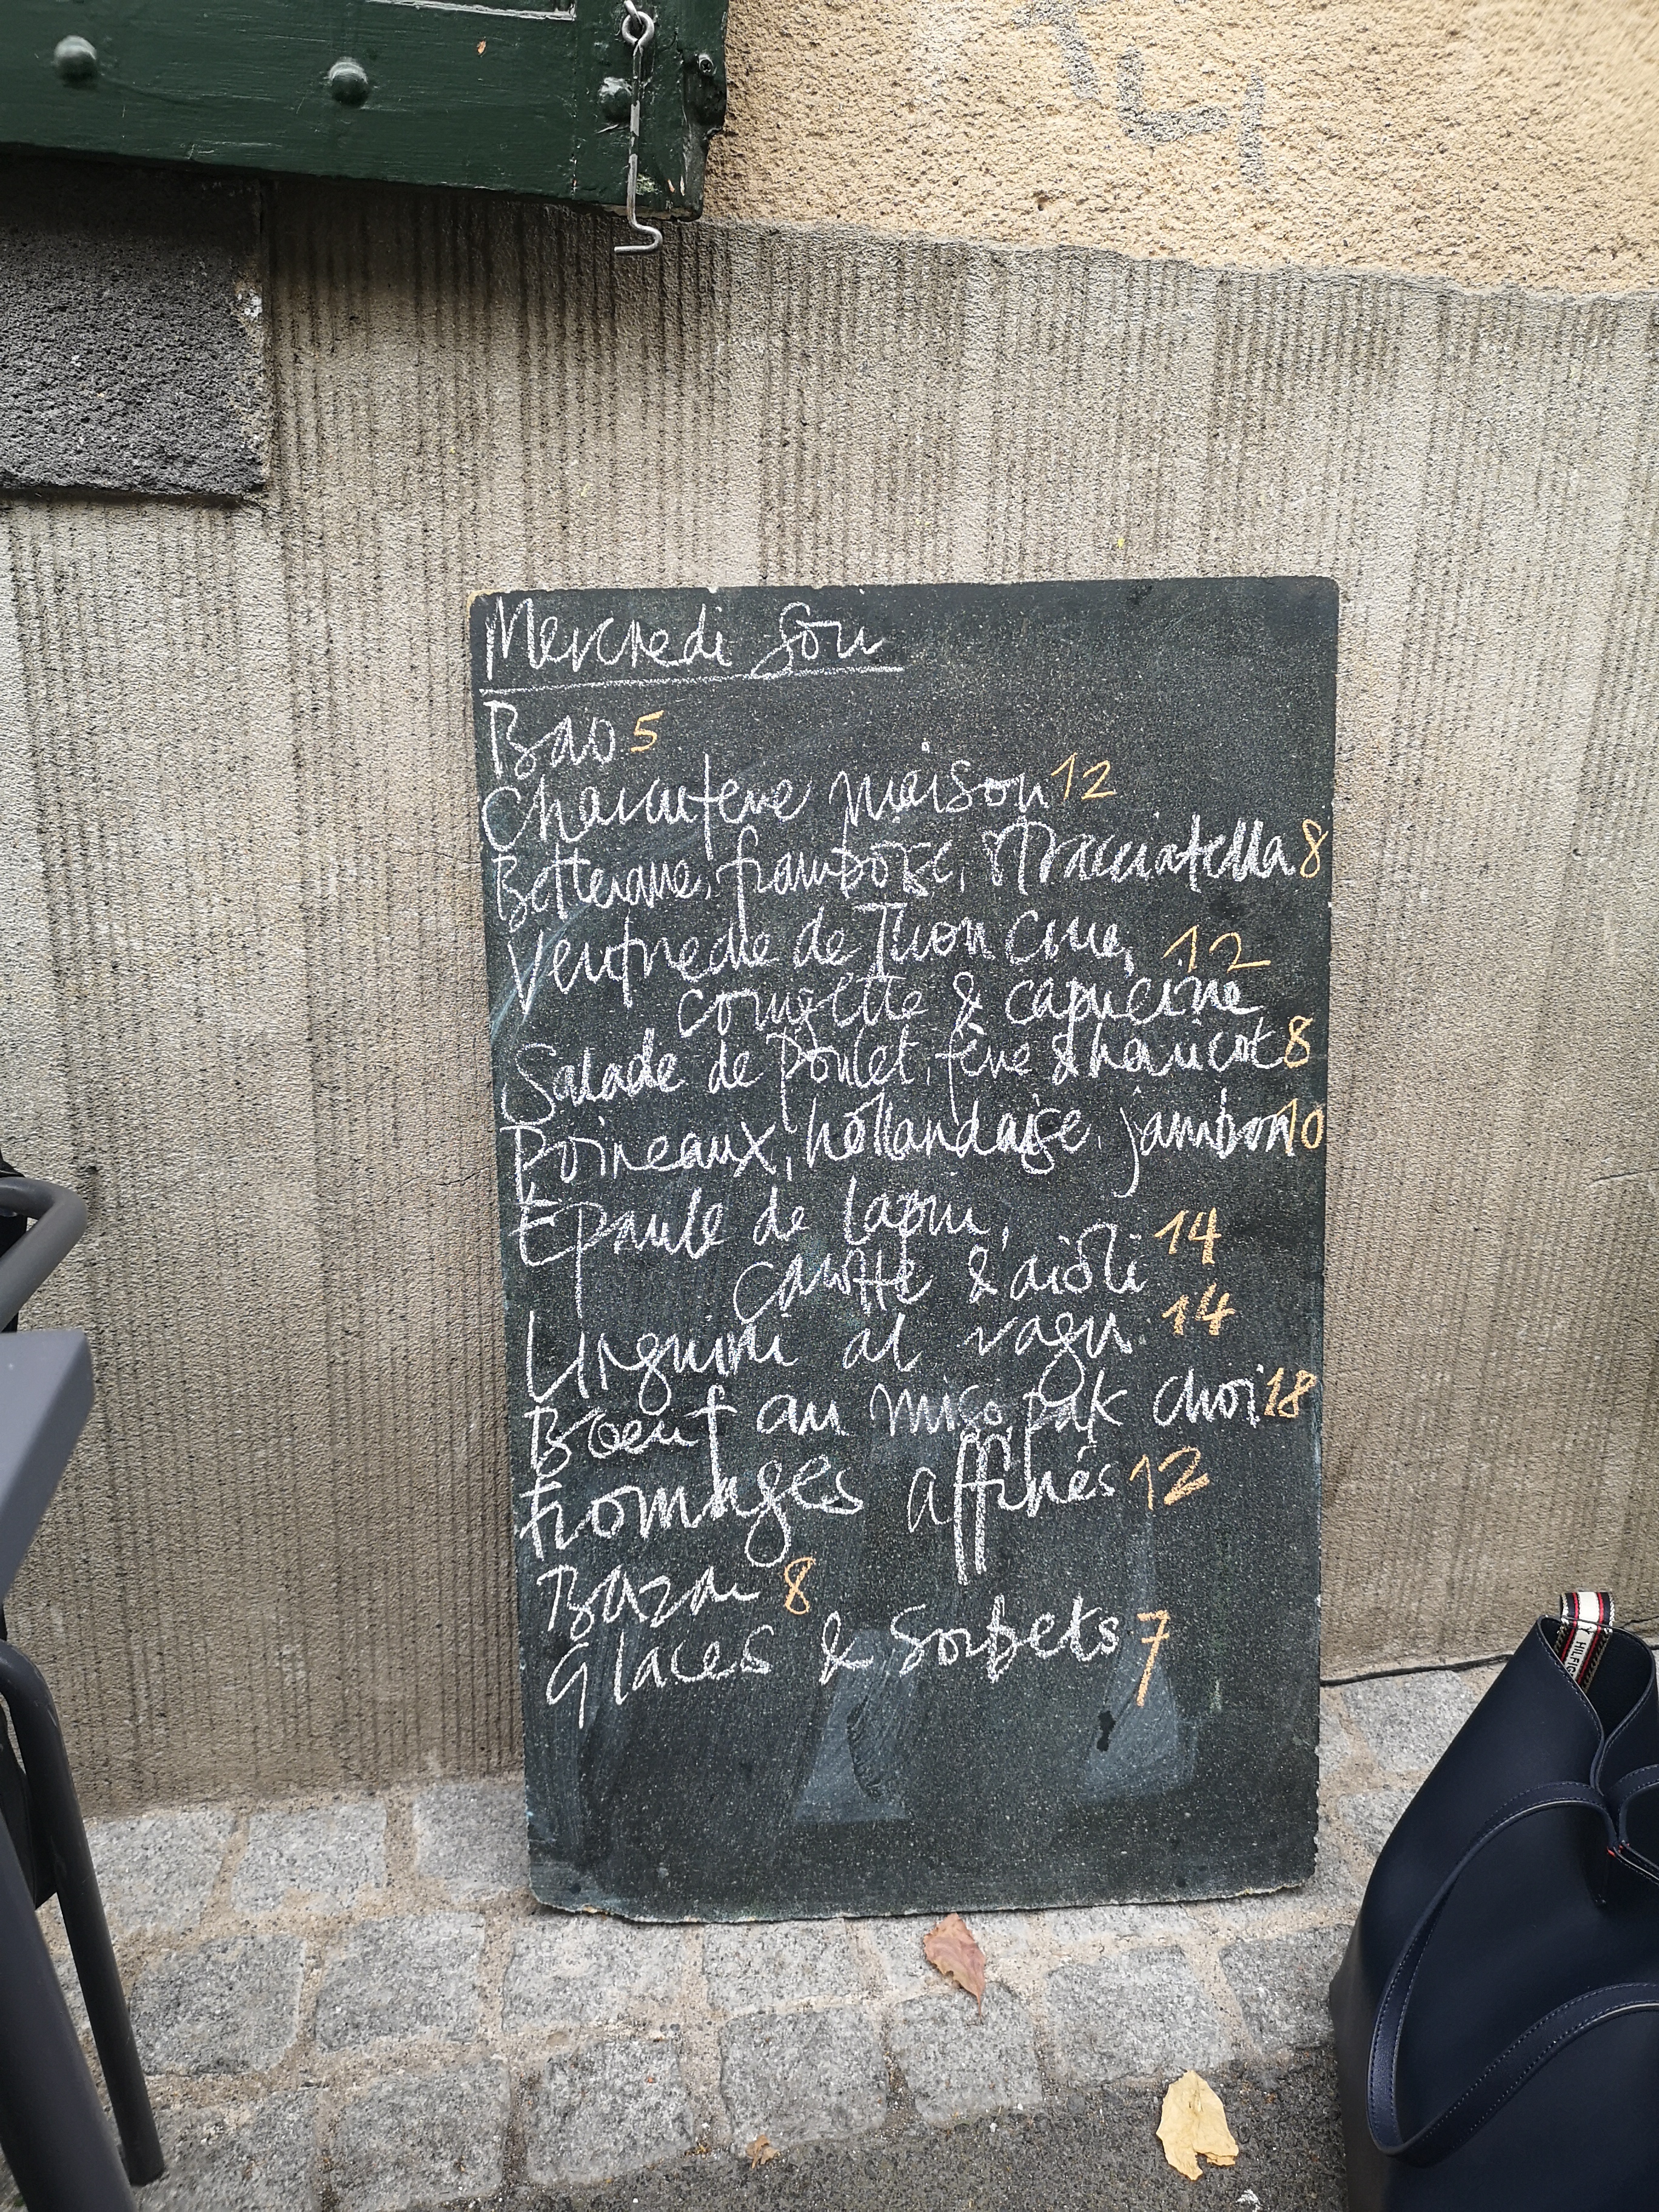 Mercredi Soir
Bao 5
Charcuterie maison 12
Betterave, framboise, stracciatella 8
Ventrèche de Thon cru, 12
courgette & capucine
Salade de poulet, fève & haricot 8
Poireaux, hollandaise, jambon 10
Epaule de lapin,
carotte & aïoli 14
Linguini al ragu 14
Boeuf au miso, pak choi 18
Fromages affinés 12
Bazar 8
Glaces & Sorbets 7
Y HILFIG